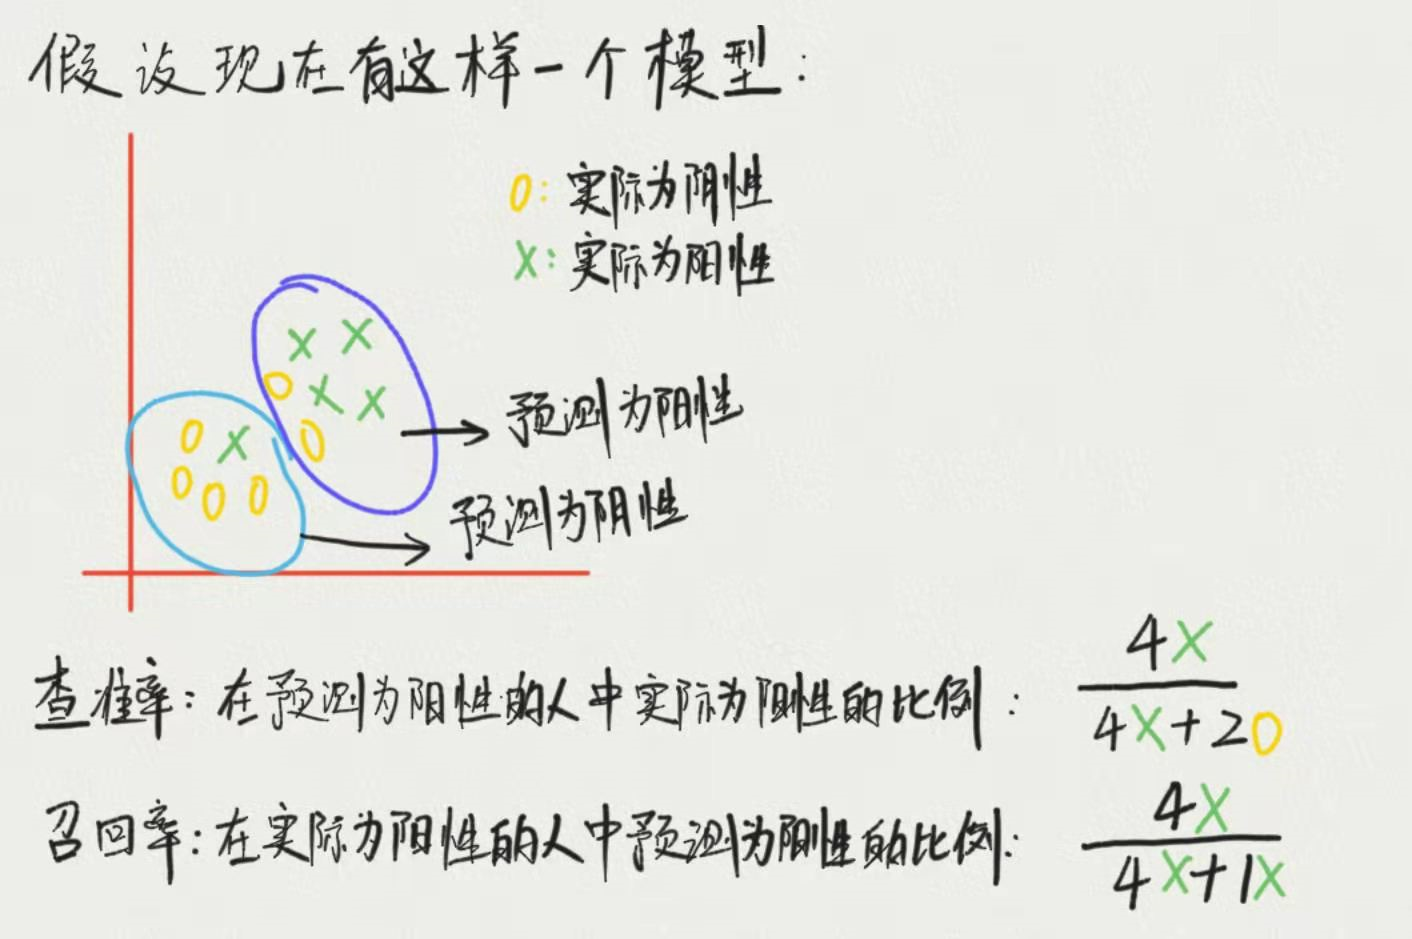 假设现在有这样一个模型:
O: 实际为阴性
X: 实际为阳性
预测为阳性
预测为阴性
查准率: 在预测为阳性的人中实际为阳性的比例: 4X
4X+2O
召回率: 在实际为阳性的人中预测为阳性的比例: 4X
4X+1X